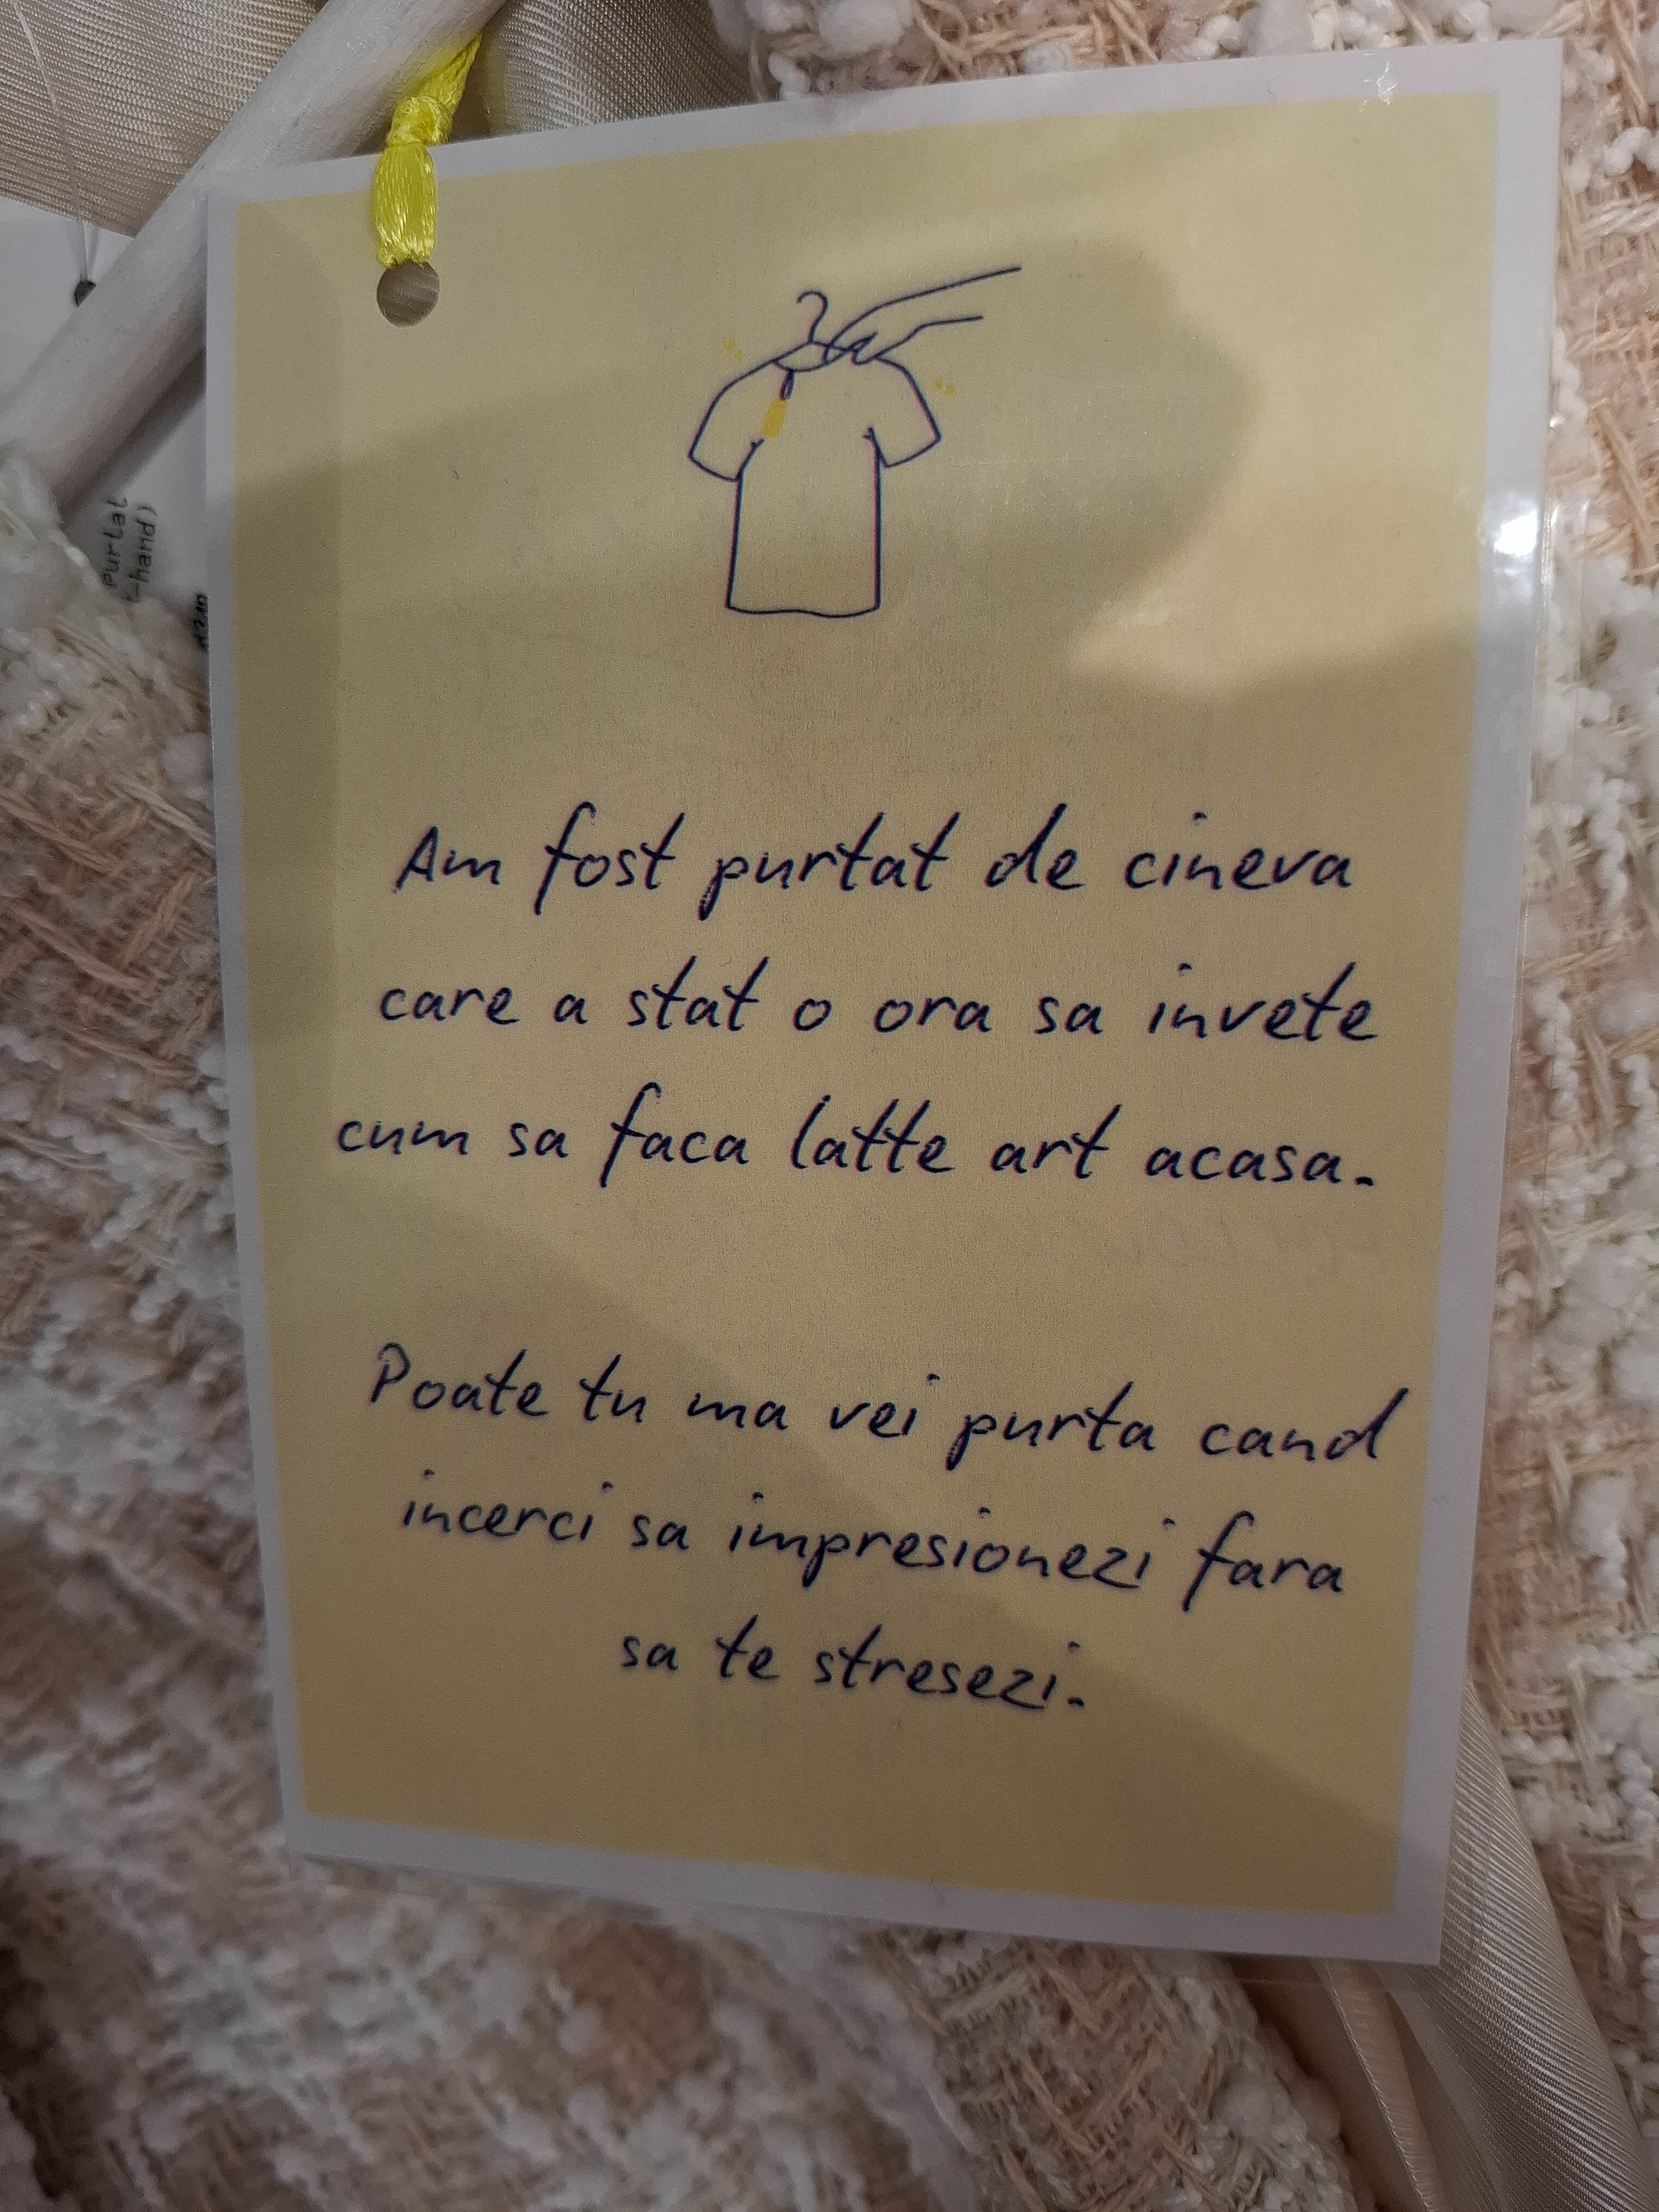 Purtat
-hand)
Am fost purtat de cineva
care a stat o ora sa invete
cum sa faca latte art acasa.
Poate tu ma vei purta cand
incerci sa impresionezi fara
sa te stresezi.